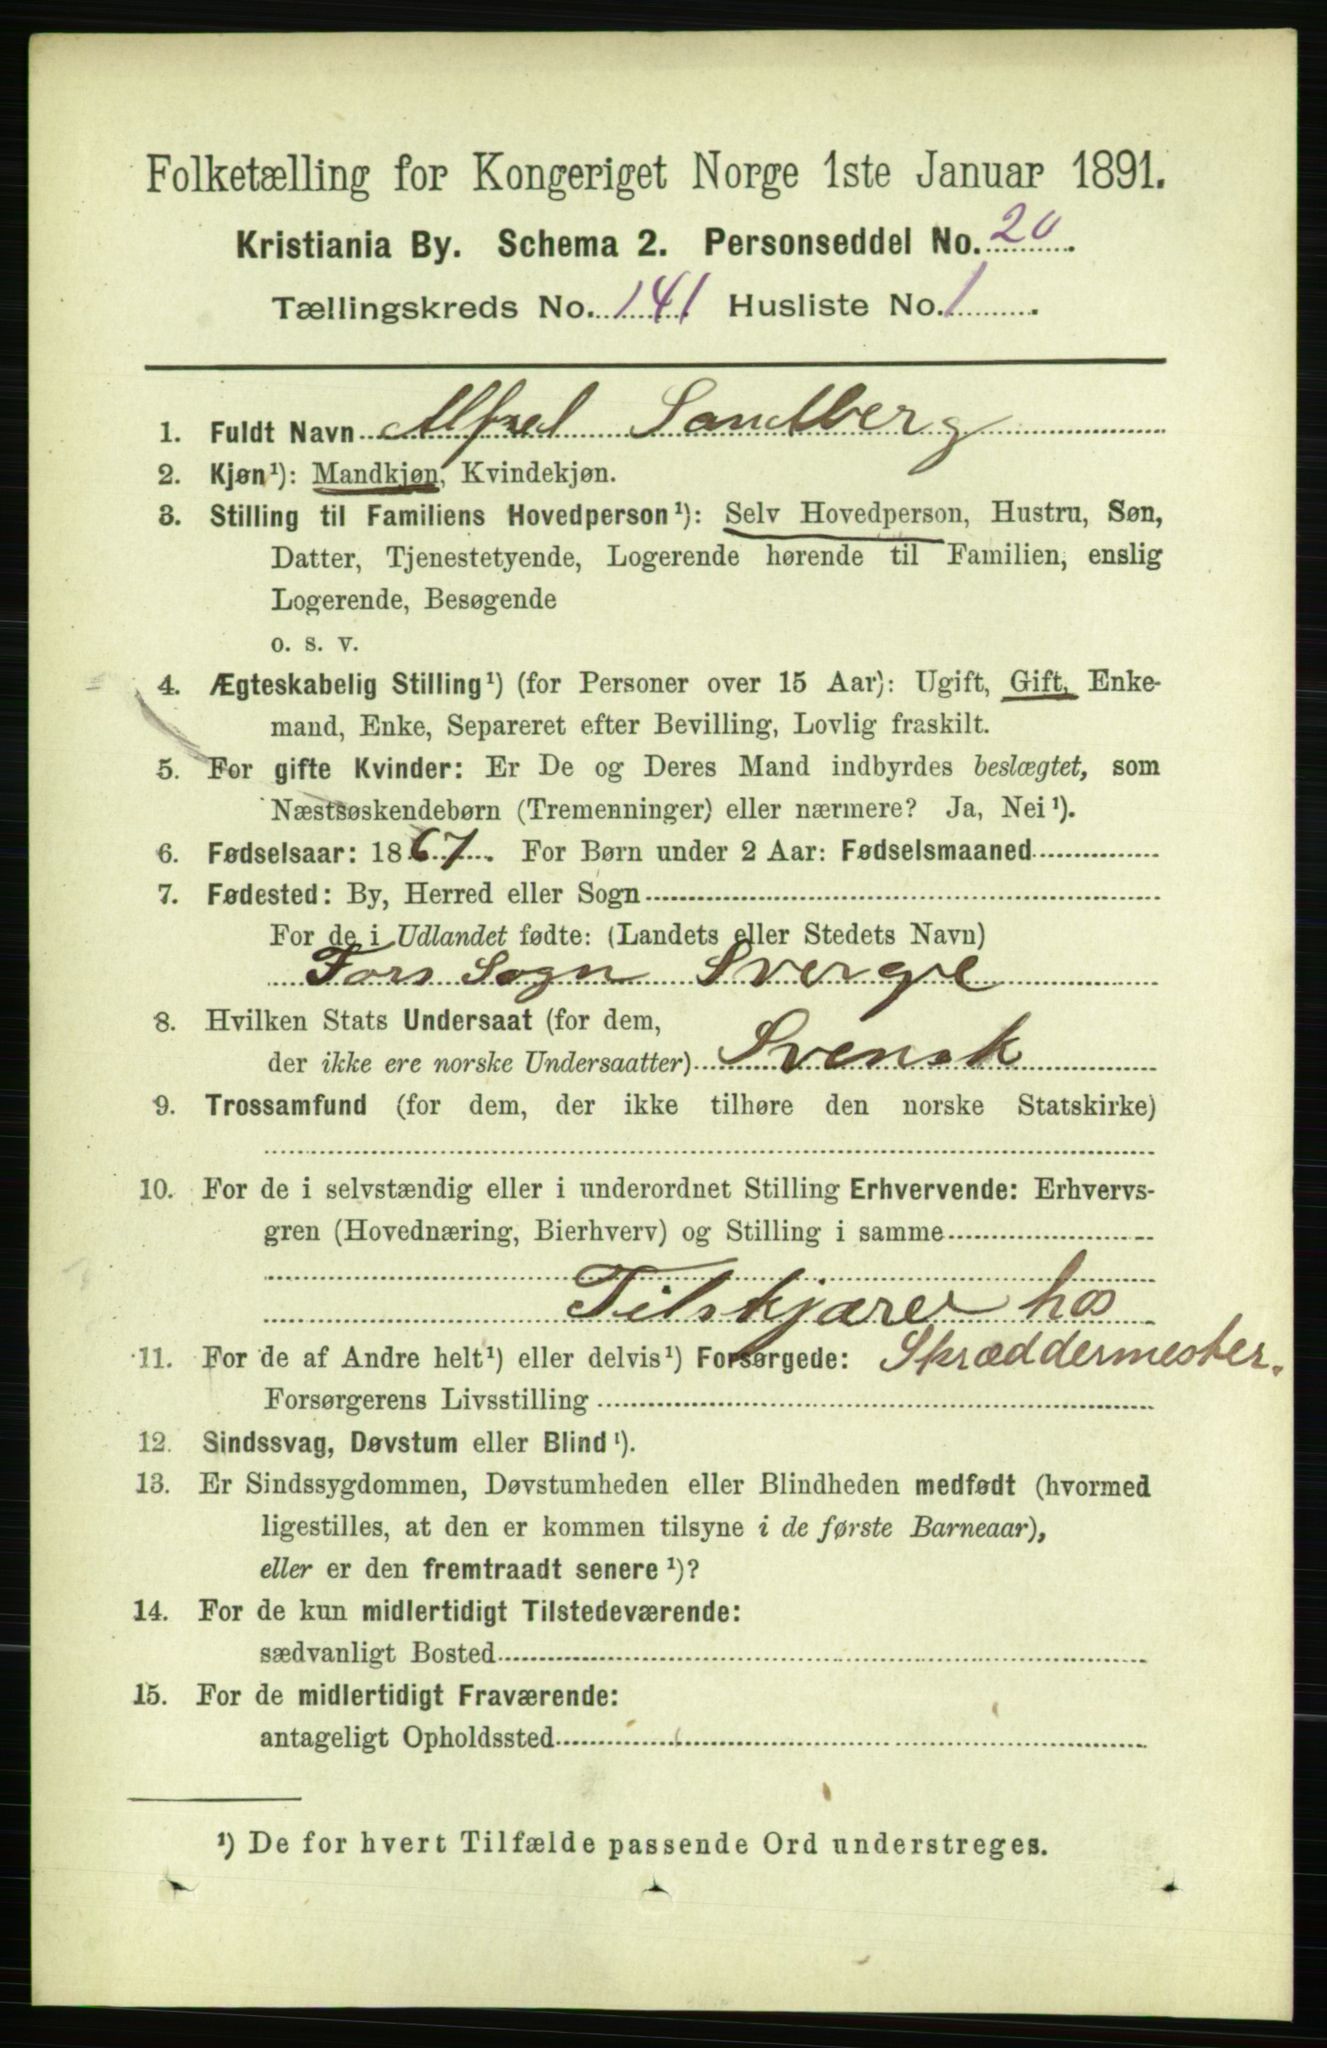 Folketælling for Kongeriget Norge 1ste Januar 1891.
Kristiania By. Schema 2. Personseddel No. 20.
Tællingskreds No. 141 Husliste No. 1.
1. Fuldt Navn Alfred Sandberg
2. Kjøn¹): Mandkjøn, Kvindekjøn.
3. Stilling til Familiens Hovedperson¹): Selv Hovedperson, Hustru, Søn,
Datter, Tjenestetyende, Logerende hørende til Familien, enslig
Logerende, Besøgende
o. s. v.
4. Ægteskabelig Stilling¹) (for Personer over 15 Aar): Ugift, Gift, Enke-
mand, Enke, Separeret efter Bevilling, Lovlig fraskilt.
5. For gifte Kvinder: Er De og Deres Mand indbyrdes beslægtet, som
Næstsøskendebørn (Tremenninger) eller nærmere? Ja, Nei¹).
6. Fødselsaar: 1867. For Børn under 2 Aar: Fødselsmaaned
7. Fødested: By, Herred eller Sogn
For de i Udlandet fødte: (Landets eller Stedets Navn)
Fors Sogn Sverge
8. Hvilken Stats Undersaat (for dem,
der ikke ere norske Undersaatter) Svensk
9. Trossamfund (for dem, der ikke tilhøre den norske Statskirke)
10. For de i selvstændig eller i underordnet Stilling Erhvervende: Erhvervs-
gren (Hovednæring, Bierhverv) og Stilling i samme
Tilskjærer hos
11. For de af Andre helt¹) eller delvis¹) Forsørgede: Skræddermester.
Forsørgerens Livsstilling
12. Sindssvag, Døvstum eller Blind¹).
13. Er Sindssygdommen, Døvstumheden eller Blindheden medfødt (hvormed
ligestilles, at den er kommen tilsyne i de første Barneaar),
eller er den fremtraadt senere¹)?
14. For de kun midlertidigt Tilstedeværende:
sædvanligt Bosted
15. For de midlertidigt Fraværende:
antageligt Opholdssted
¹) De for hvert Tilfælde passende Ord understreges.